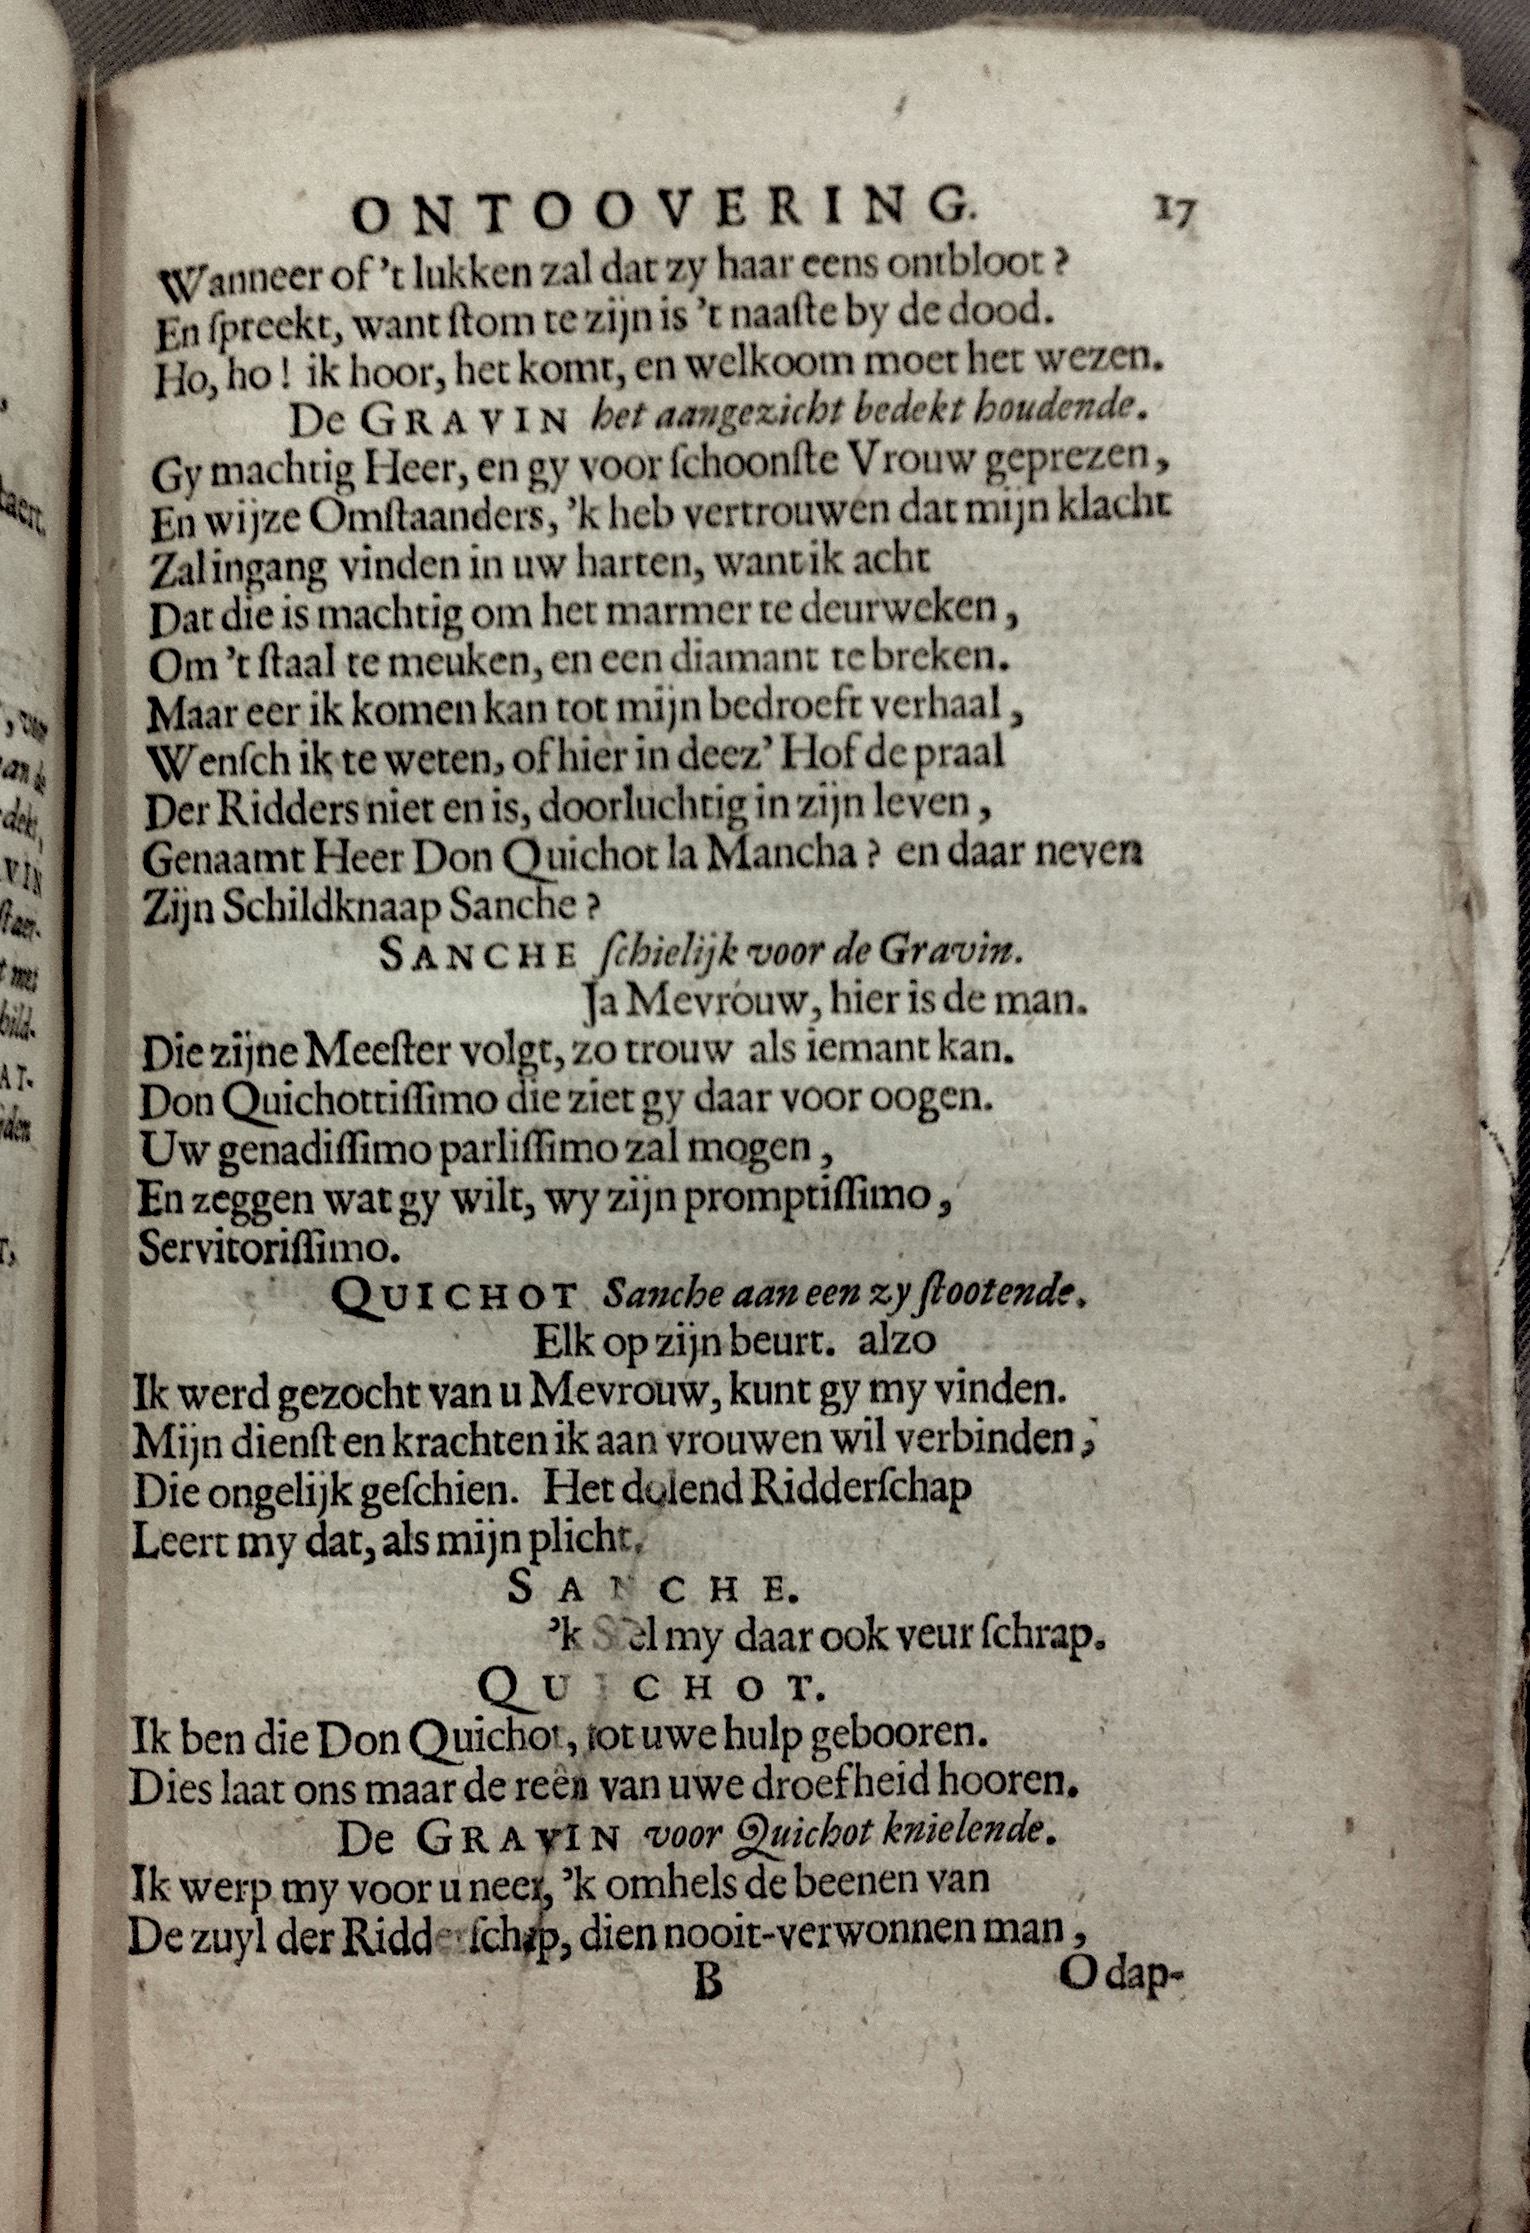 ONTOOVERING. 17
Wanneer of 't lukken zal dat zy haar eens ontbloot?
En ſpreekt, want ſtom te zijn is 't naaſte by de dood.
Ho, ho! ik hoor, het komt, en welkoom moet het wezen.
De GRAVIN het aangezicht bedekt houdende.
Gy machtig Heer, en gy voor ſchoonſte Vrouw geprezen,
En wijze Omſtaanders, 'k heb vertrouwen dat mijn klacht
Zal ingang vinden in uw harten, want ik acht
Dat die is machtig om het marmer te deurweken,
Om 't ſtaal te meuken, en een diamant te breken.
Maar eer ik komen kan tot mijn bedroeft verhaal,
Wenſch ik te weten, of hier in deez' Hof de praal
Der Ridders niet en is, doorluchtig in zijn leven,
Genaamt Heer Don Quichot la Mancha? en daar neven
Zijn Schildknaap Sanche?
SANCHE ſchielijk voor de Gravin.
Ja Mevrouw, hier is de man.
Die zijne Meeſter volgt, zo trouw als iemant kan.
Don Quichottiſſimo die ziet gy daar voor oogen.
Uw genadiſſimo parliſſimo zal mogen,
En zeggen wat gy wilt, wy zijn promptiſſimo,
Servitoriſſimo.
QUICHOT Sanche aan een zy ſtootende.
Elk op zijn beurt. alzo
Ik werd gezocht van u Mevrouw, kunt gy my vinden.
Mijn dienſt en krachten ik aan vrouwen wil verbinden,
Die ongelijk geſchien. Het dolend Ridderſchap
Leert my dat, als mijn plicht.
SANCHE.
'k Stel my daar ook veur ſchrap.
QUICHOT.
Ik ben die Don Quichot, tot uwe hulp gebooren.
Dies laat ons maar de reên van uwe droefheid hooren.
De GRAVIN voor Quichot knielende.
Ik werp my voor u neer, 'k omhels de beenen van
De zuyl der Ridderſchap, dien nooit-verwonnen man,
B O dap-